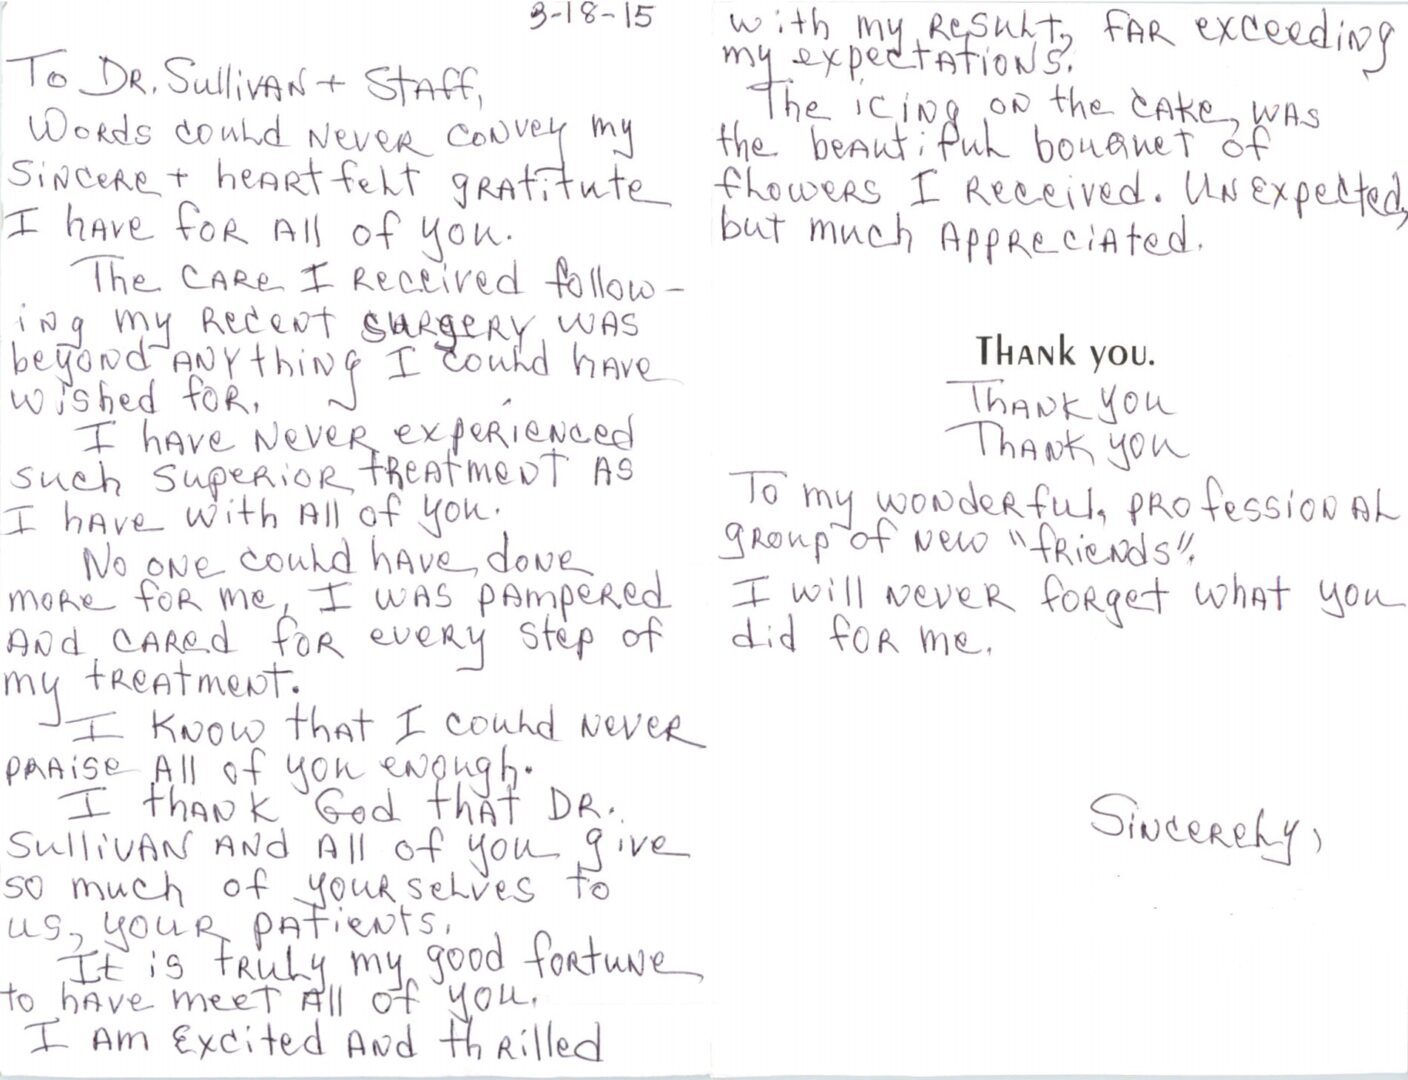 3-18-15
To Dr. Sullivan + Staff,
Words could never convey my
sincere + heartfelt gratitute
I have for all of you.
The care I received follow-
ing my recent surgery was
beyond anything I could have
wished for.
I have never experienced
such superior treatment as
I have with all of you.
No one could have done
more for me, I was pampered
and cared for every step of
my treatment.
I know that I could never
praise all of you enough.
I thank God that Dr.
Sullivan and all of you give
so much of yourselves to
us, your patients.
It is truly my good fortune
to have meet all of you.
I am excited and thrilled
with my result, far exceeding
my expectations.
The icing on the cake, was
the beautiful bouquet of
flowers I received. Unexpected,
but much appreciated.
Thank you.
Thank you
Thank you
To my wonderful, professional
group of new "friends".
I will never forget what you
did for me.
Sincerely,